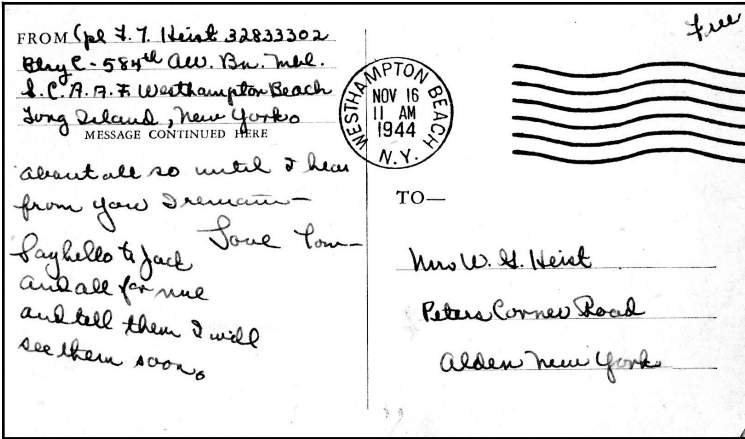 Free
FROM Cpl F. T. Heist 32833302
Btry C - 584th AW. Bn. Mbl.
S. C. A. A. F. Westhampton Beach
Long Island, New York.
MESSAGE CONTINUED HERE
about all so until I hear
from you I remain—
Love Tom—
Say hello to Jack
and all for me
and tell them I will
see them soon.
WESTHAMPTON BEACH
NOV 16
11 AM
1944
N.Y.
TO—
Mrs W. G. Heist
Peters Corner Road
Alden New York